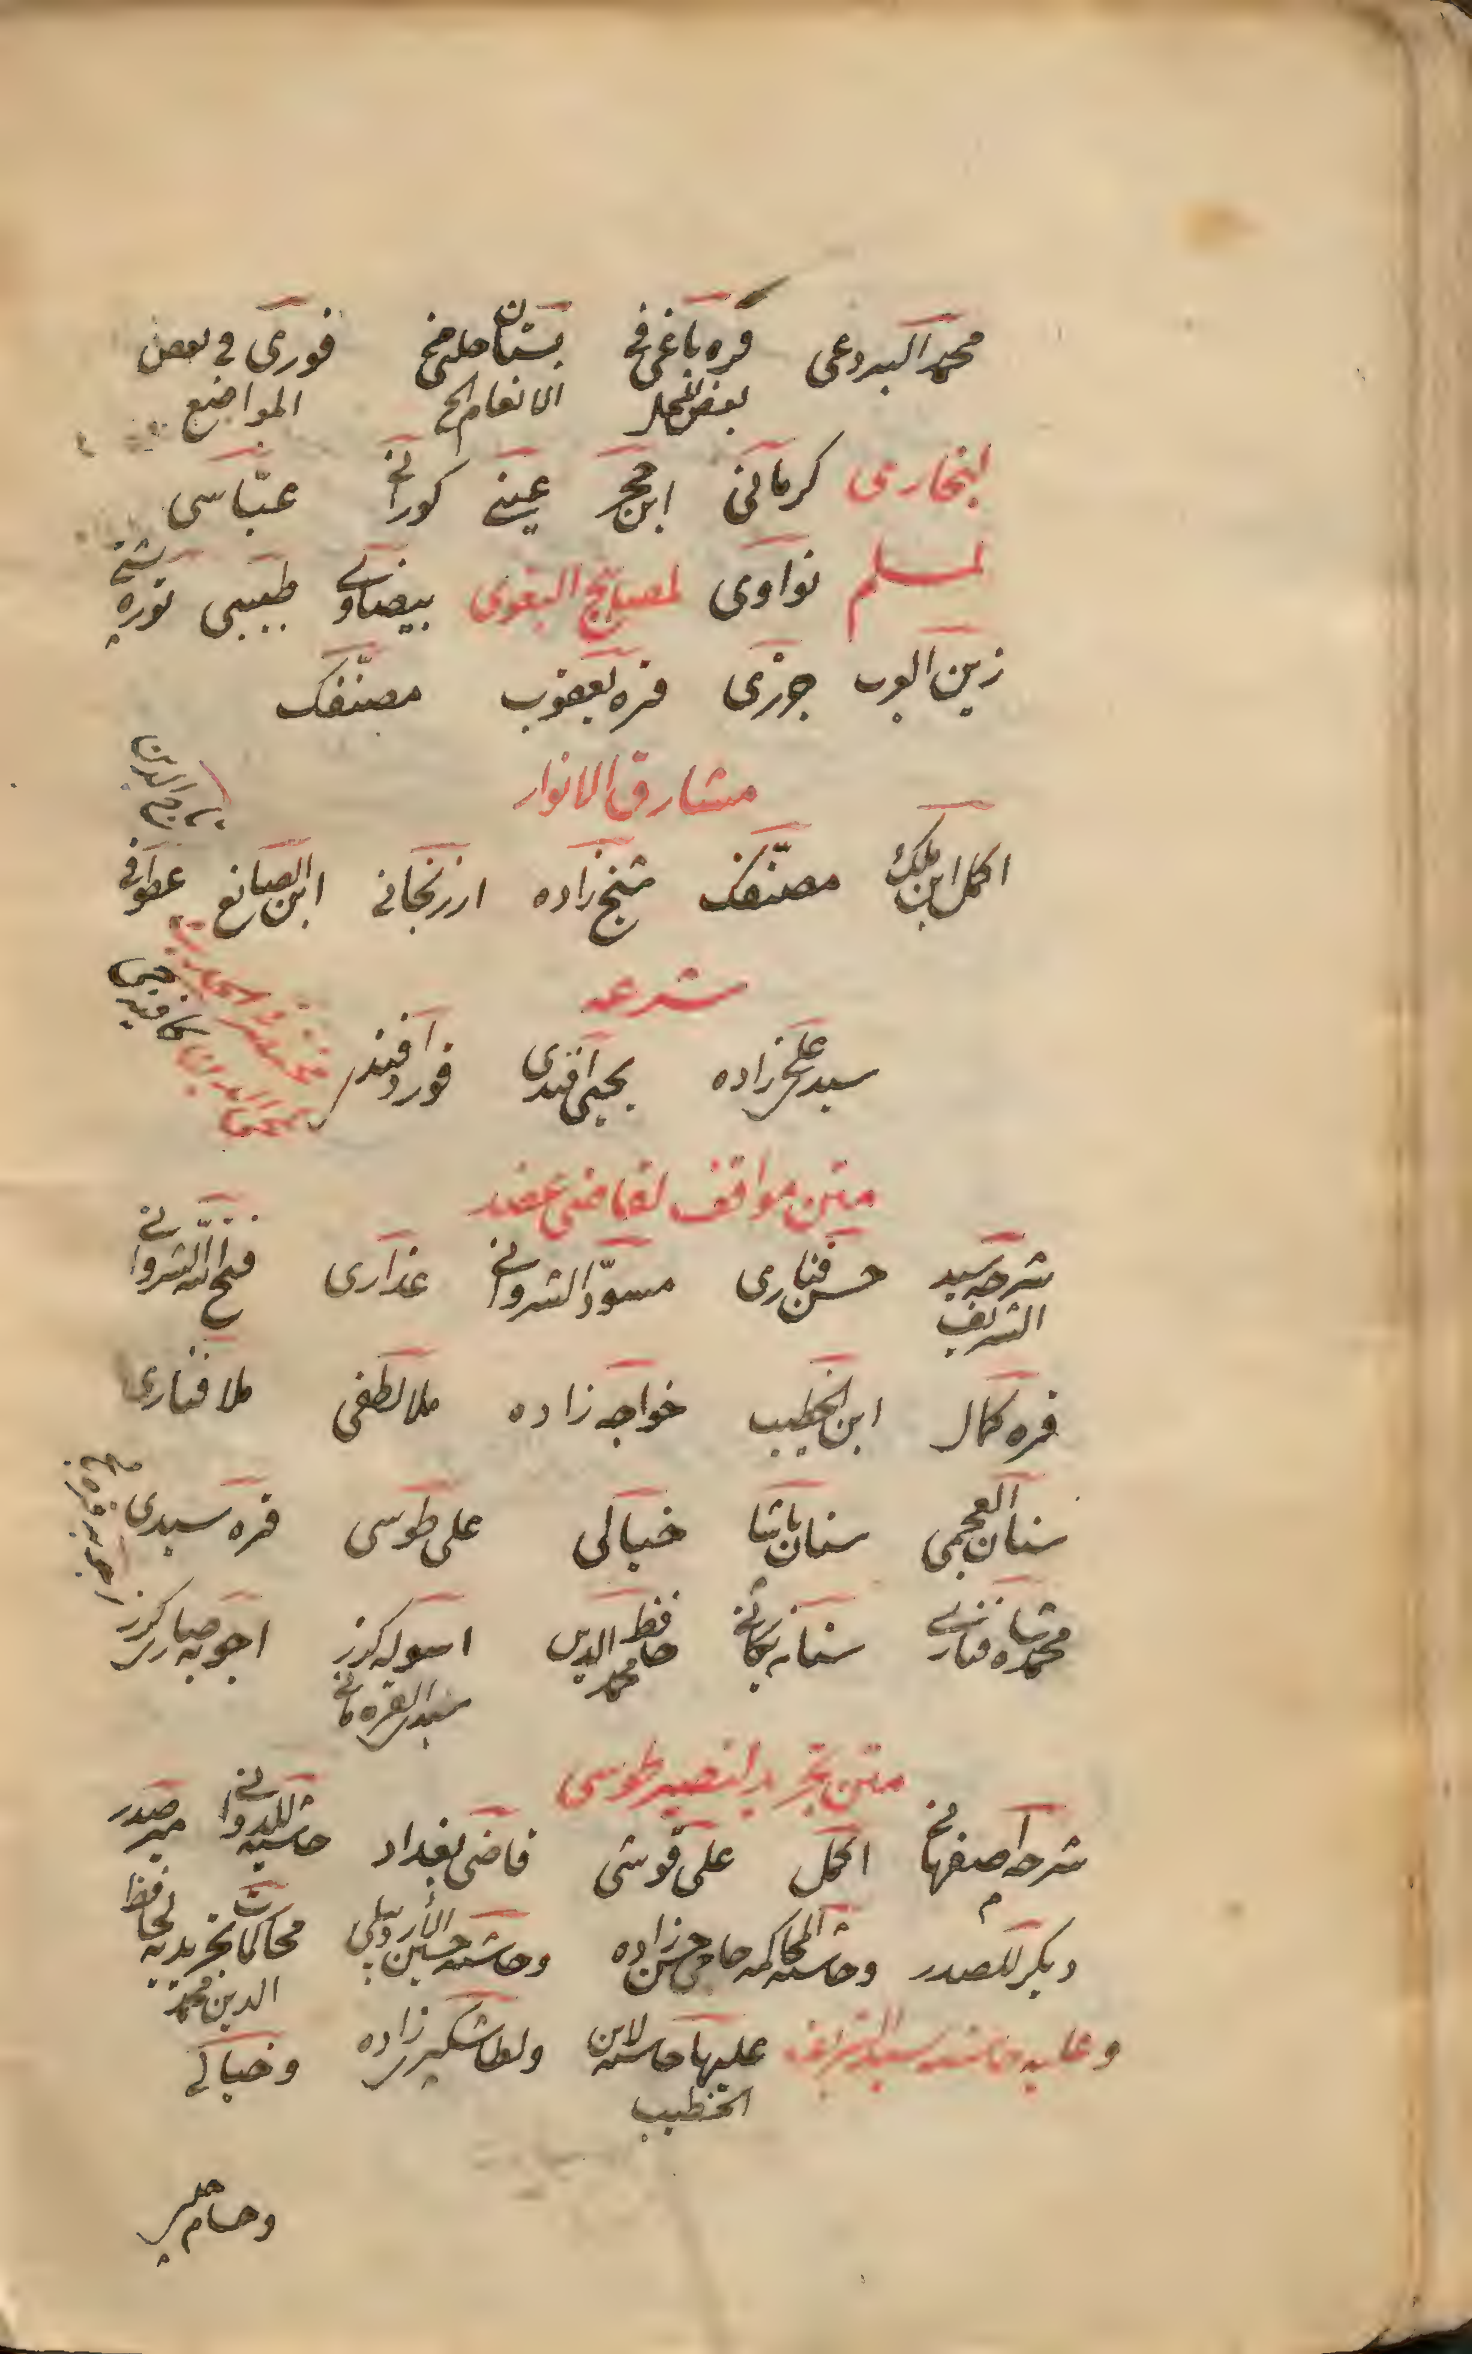 محمد البردعی قره باغی فی بعض المحل بستان چلبی فی الانعام الخ فوری فی بعض المواضع
لبخاری کرمانی ابن حجر عینی کورانی عباسی
لمسلم نواوی لمصابیح البغوی بیضاوی طیبی توربشتی
زین العرب جزری قره یعقوب مصنفک
مشارق الانوار
اکمل ابن ملک مصنفک شیخ زاده ارزنجانی ابن الصایغ عطوافی
شرعه
سید علی زاده یحیی افندی قورد افندی
متن مواقف لقاضی عضد
شرحه سید الشریف حسن فناری مسعود الشروانی عذاری فتح الله الشروانی
قره کمال ابن الخطیب خواجه زاده ملا لطفی ملا فناری
سنان العجمی سنان پاشا خیالی علی طوسی قره سیدی
محمد شاه فناری سنان یکانی حافظ الدین محمد اسوله کرز سیدی القرمانی اجوبه صاری کرز
متن تجرید لنصیر طوسی
شرحه اصفهانی اکمل علی قوشی قاضی بغداد حاشیه للدوانی میر صدر
دیکر للصدر وحاشیة المحاکمه حاجی حسن زاده وحاشیه حسین الأردبیلی محاکمات تجریدیه لحافظ الدین محمد
وعلیه حاشیه سید الشریف علیها حاشیه لابن الخطیب ولطاشکپری زاده وخیالی
وحسام چلبی